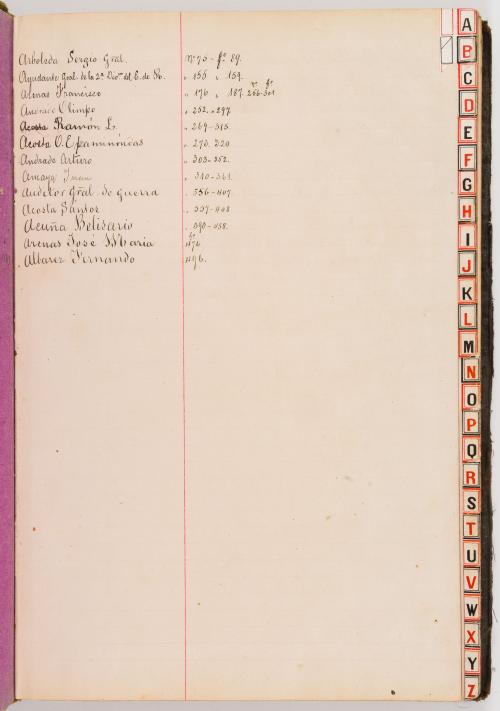 Arboleda Sergio Gral. Nº 75 - fº 89.
Ayudante Gral. de la 2ª Divon. del E. de Rs. " 155 " 159.
Almas Francisco " 176 " 187. nº 256 - fº 301
Andrade Olimpo " 252. " 297.
Acosta Ramón L. " 269 - 315.
Acosta O. Epaminondas " 273. 320
Andrade Arturo " 303 - 352.
Amaya Juan " 310 - 361.
Auditor Gral. de Guerra " 356 - 407.
Acosta Santos " 357 - 408
Acuña Belisario " 390 - 458.
Arenas José Maria fº 476
Albarez Fernando 496.
A
B
C
D
E
F
G
H
I
J
K
L
M
N
O
P
Q
R
S
T
U
V
W
X
Y
Z